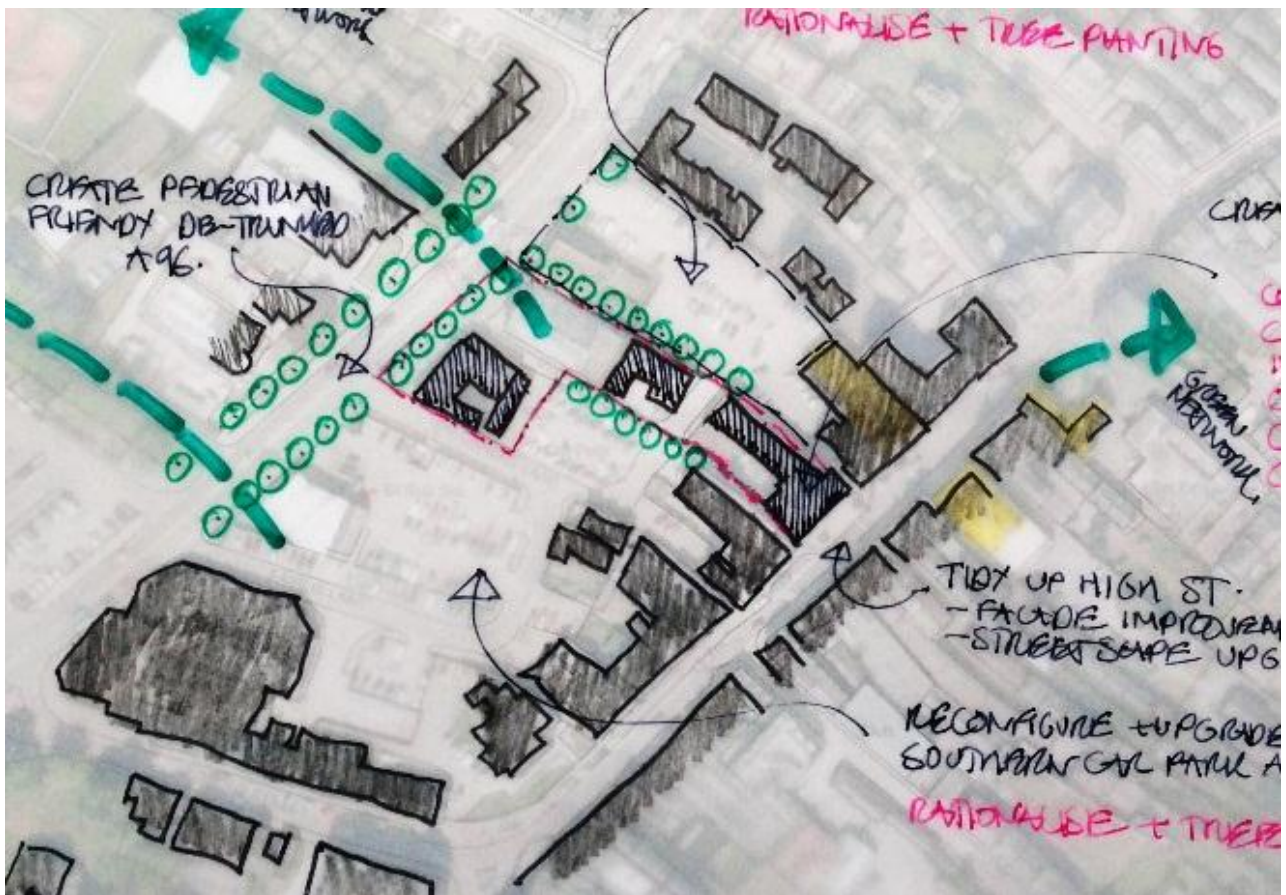 NETWORK
RATIONALISE + TREE PLANTING
CREATE PEDESTRIAN
FRIENDY DE-TRUNKED
A96.
CREA
GREEN
NETWORK,
TIDY UP HIGH ST.
- FACADE IMPROVEM
- STREETSCAPE UPG
RECONFIGURE + UPGRADE
SOUTHERN CAR PARK A
RATIONALISE + TREE